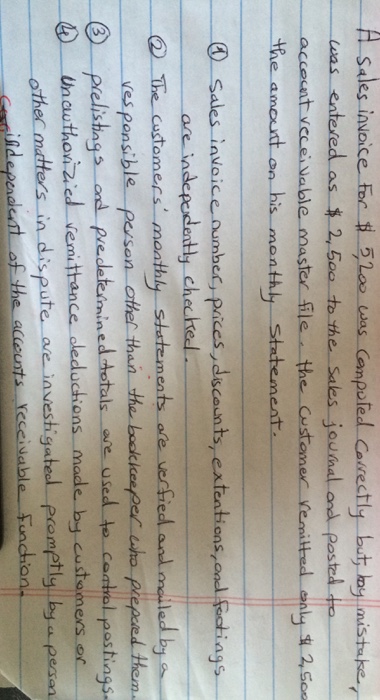 A sales invoice for $ 5,200 was computed correctly but, by mistake,
was entered as $ 2,500 to the sales journal and posted to
account receivable master file. the customer remitted only $ 2,500
the amount on his monthly statement.
① Sales invoice numbers, prices, discounts, extentions, and footings
are independently checked.
② The customers' monthly statements are verfied and mailed by a
responsible person other than the bookkeeper who prepared them.
③ prelistings and predetermined totals are used to control postings.
④ Unauthorizied remittance deductions made by customers or
other matters in dispute are investigated promptly by a person
independent of the accounts receivable function.